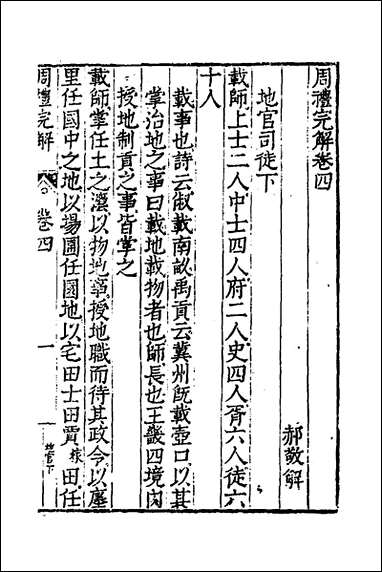 周禮完解卷四
郝敬解
地官司徒下
載師上士二人中士四人府二人史四人胥六人徒六
十人
載事也詩云俶載南畝禹貢云冀州旣載壺口以其
掌治地之事曰載地載物者也師長也王畿四境内
授地制貢之事皆掌之
載師掌任土之灋以物地事授地職而待其政令以廛
里任國中之地以場圃任園地以宅田士田賈田任
周禮完解
卷四
一
地官下